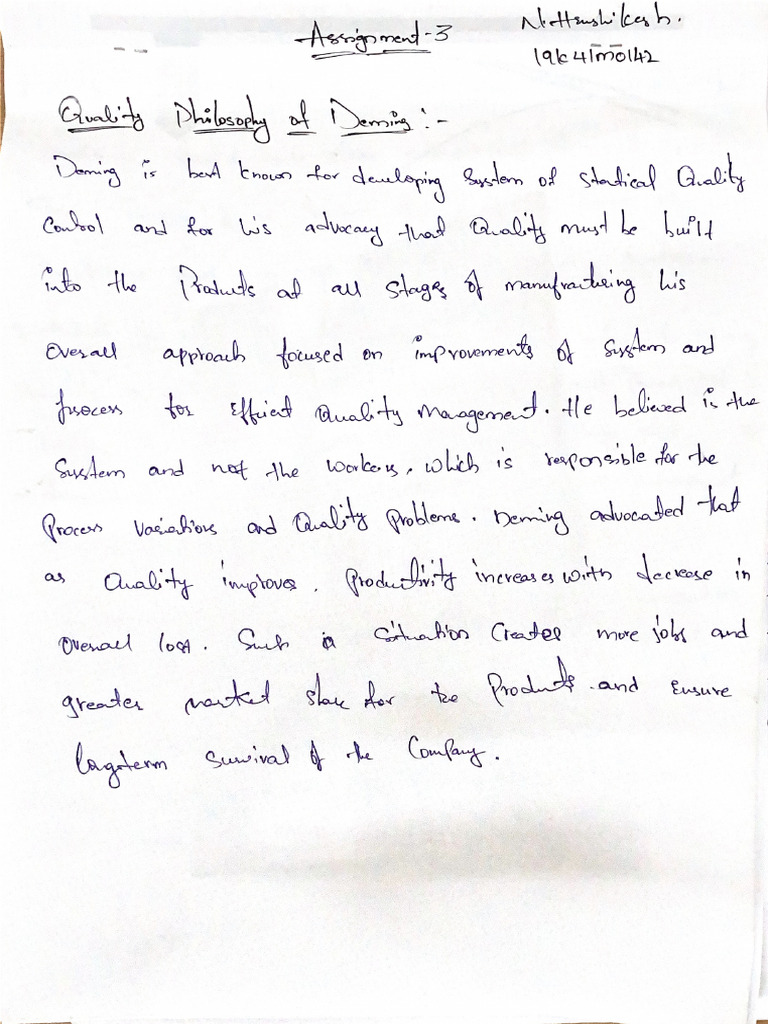 Assignment-3
N. Hrushikesh.
19K41M0142
Quality Philosophy of Deming :-
Deming is best known for developing System of Statical Quality
Control and for his advocacy that Quality must be built
into the Products at all stages of manufracturing his
Overall approach focused on improvements of System and
process for Effient Quality Management. He believed is the
System and not the workers, which is responsible for the
Process Variations and Quality Problems. Deming advocated that
as Quality improves, Productivity increases with decrease in
Overall cost. Such a Situation Creates more jobs and
greater market share for the Products and Ensure
longterm Survival of the Company.